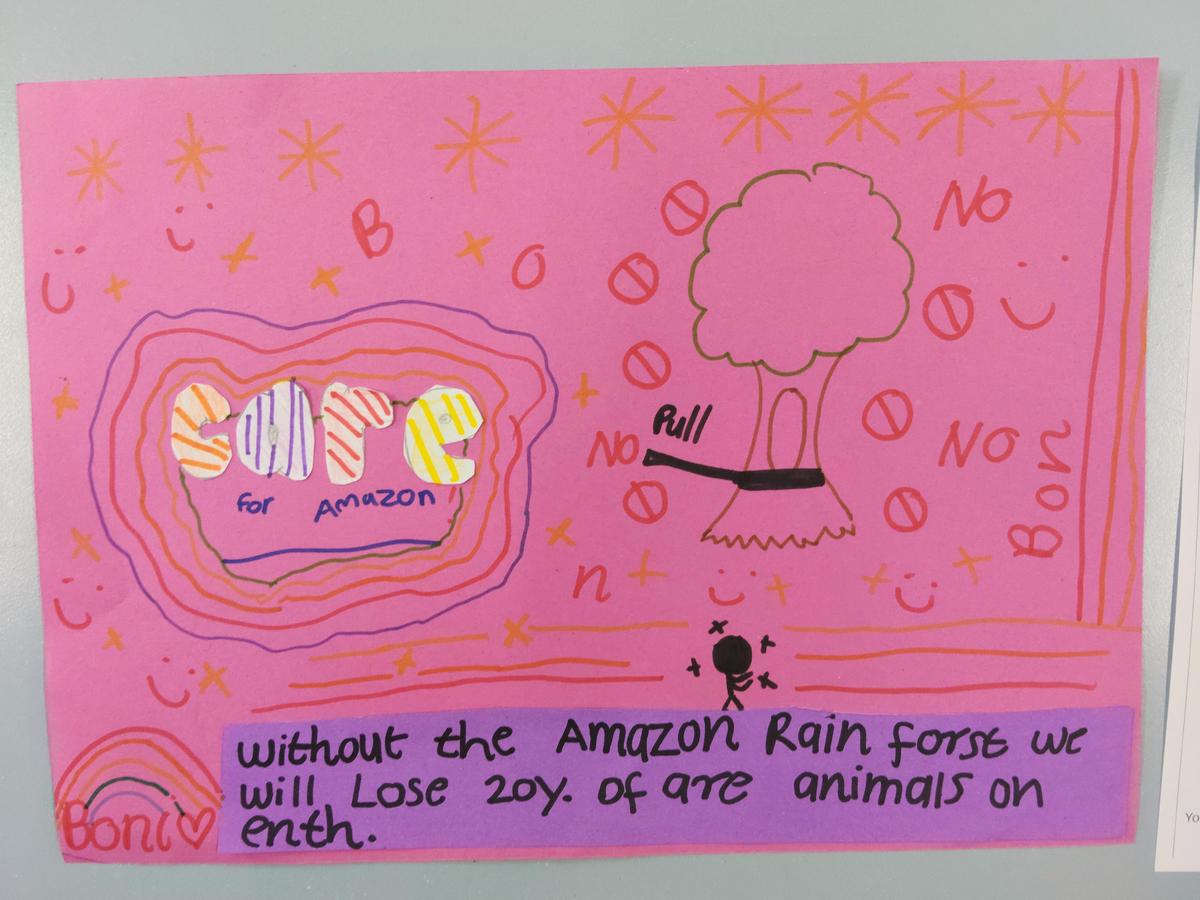 B
O
n
NO
NO
NO
Pull
Bon
care
for Amazon
without the Amazon Rain forst we
will Lose 20y. of are animals on
enth.
Boni